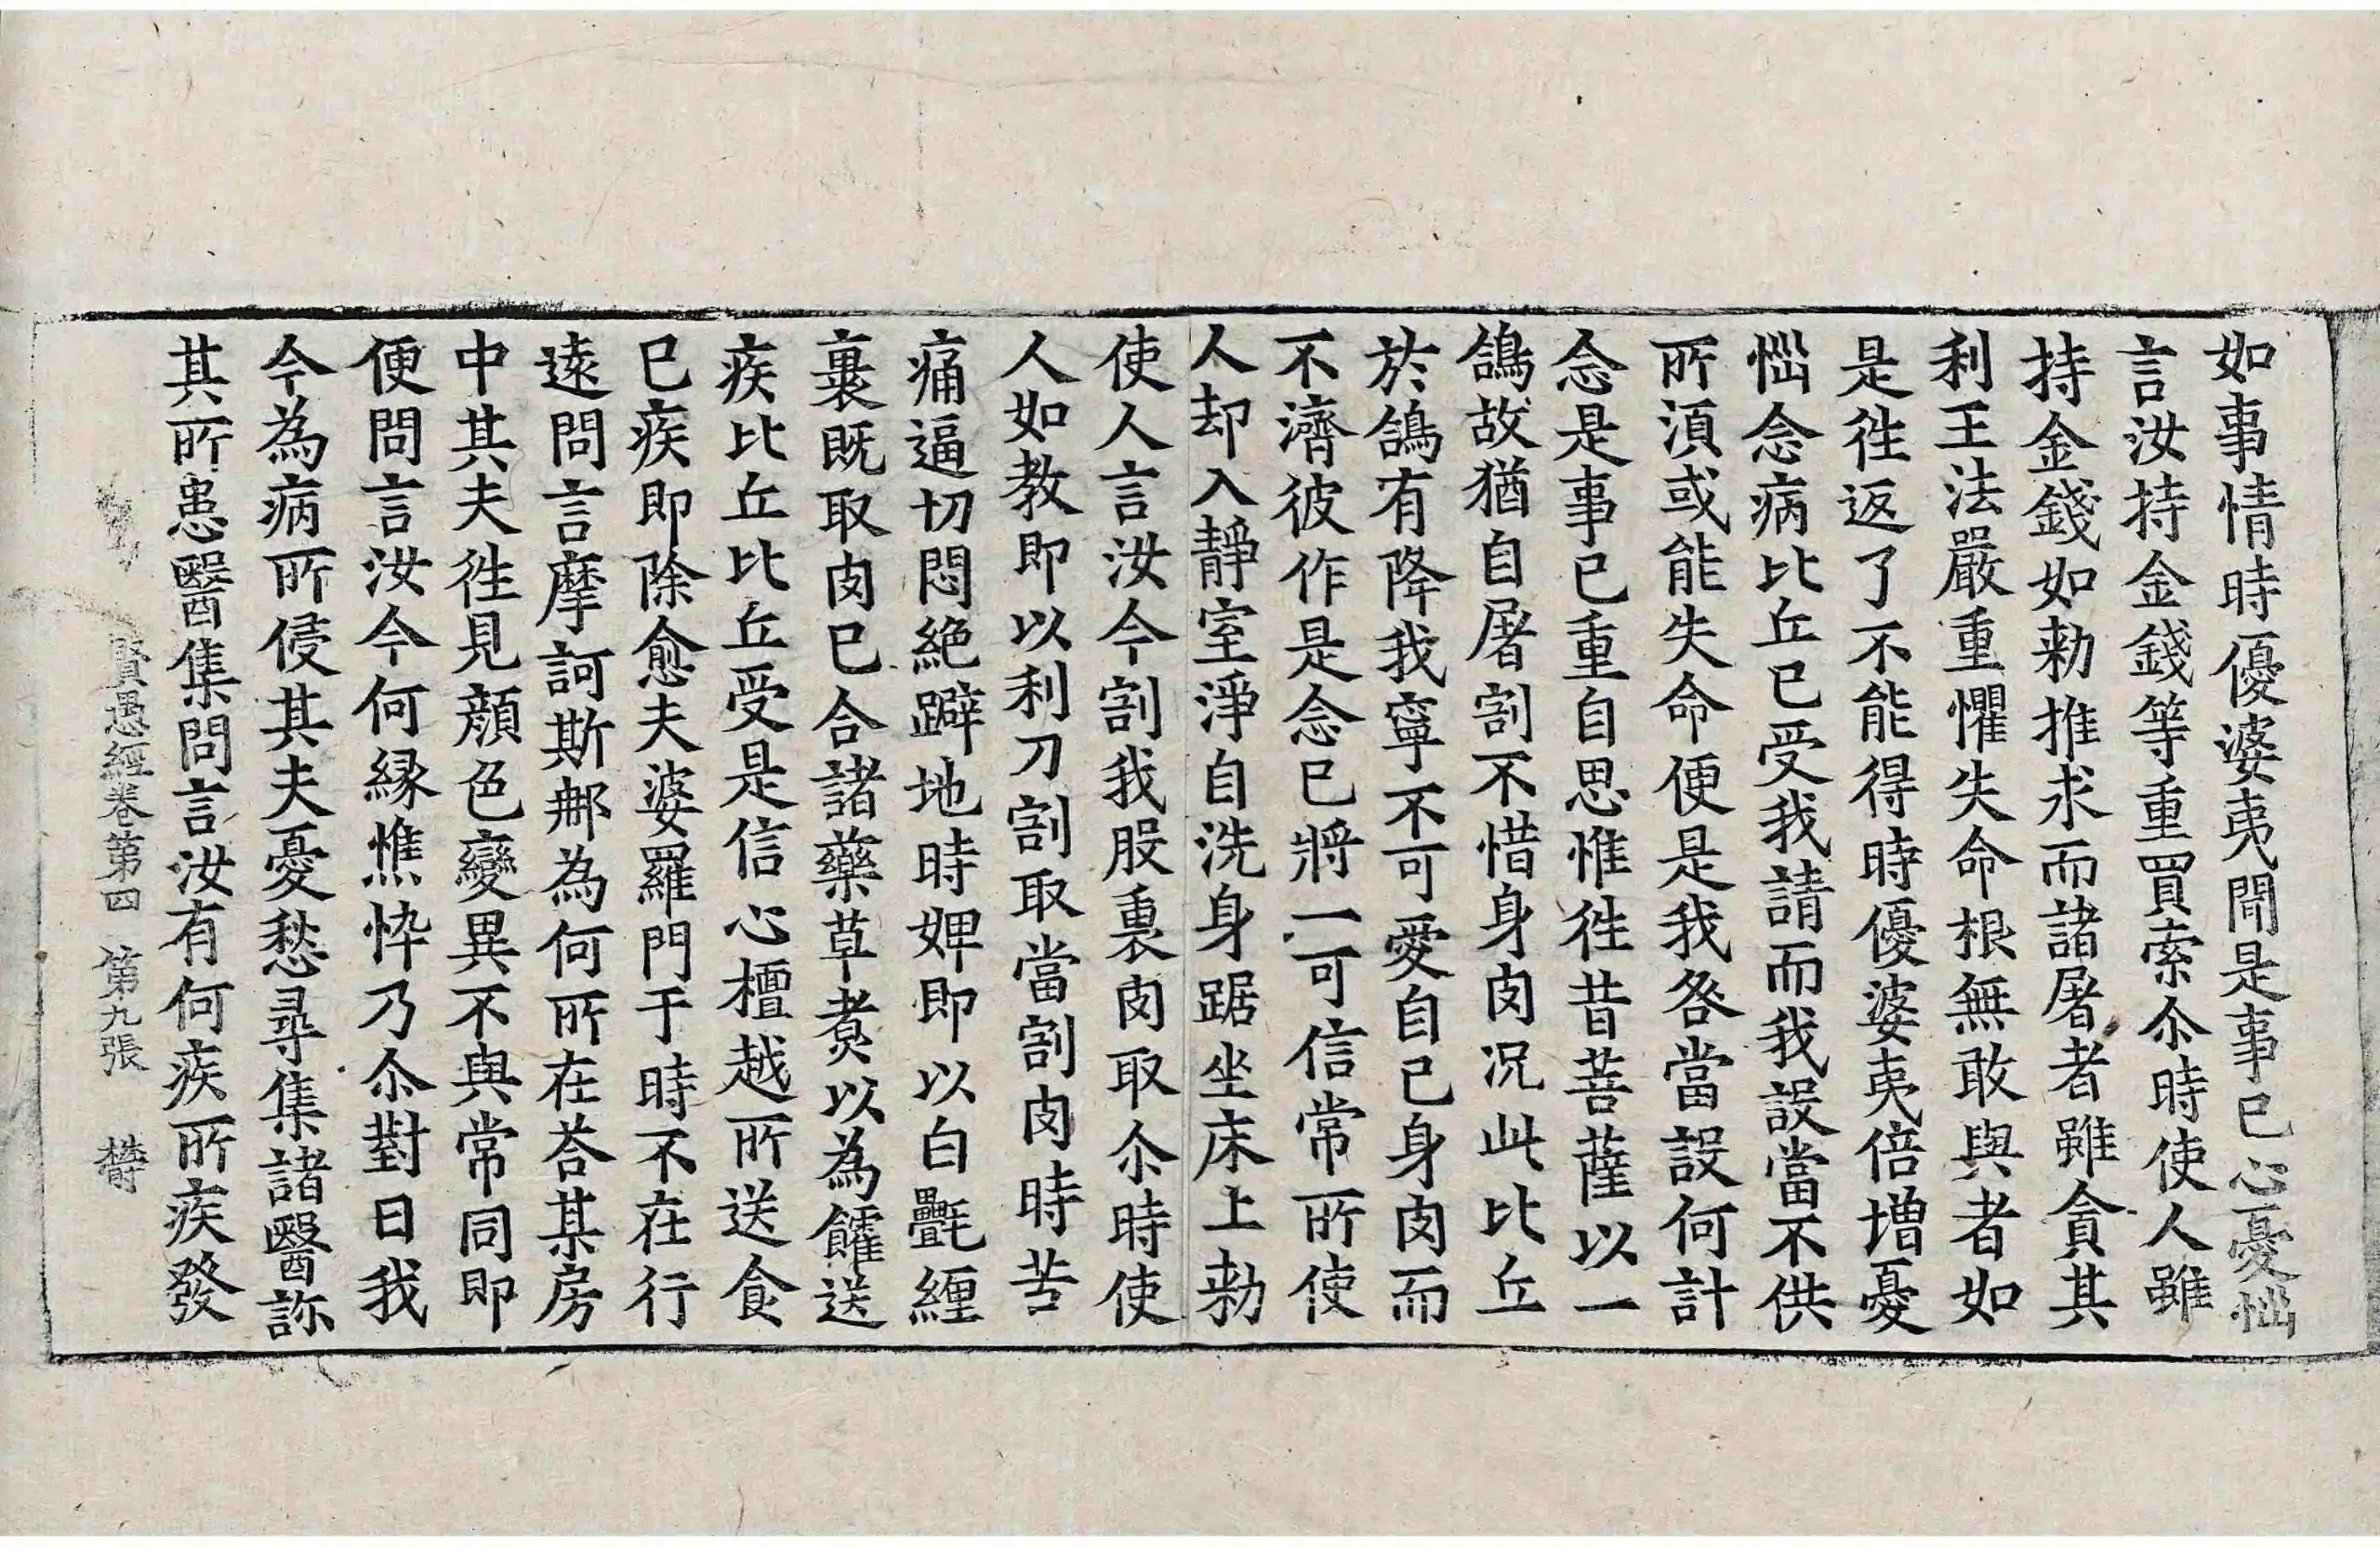 如事情時優婆夷聞是事已心憂惱
言汝持金錢等重買索尒時使人雖
持金錢如勑推求而諸屠者雖貪其
利王法嚴重懼失命根無敢與者如
是徃返了不能得時優婆夷倍增憂
惱念病比丘已受我請而我設當不供
所湏或能失命便是我咎當設何計
念是事已重自思惟徃昔菩薩以一
鴿故猶自屠割不惜身肉况此比丘
於鴿有降我寧不可愛自己身肉而
不濟彼作是念已將一可信常所使
人却入靜室淨自洗身踞坐床上勑
使人言汝今割我股裏肉取尒時使
人如教即以利刀割取當割肉時苦
痛逼切悶絕躃地時婢即以白㲲纏
裹既取肉已合諸藥草煑以為臛送
疾比丘比丘受是信心檀越所送食
已疾即除愈夫婆羅門于時不在行
逺問言摩訶斯那為何所在荅某房
中其夫徃見顔色變異不與常同即
便問言汝今何縁憔悴乃尒對曰我
今為病所侵其夫憂愁尋集諸醫診
其所患醫集問言汝有何疾所疾發
賢愚經卷第四 第九張